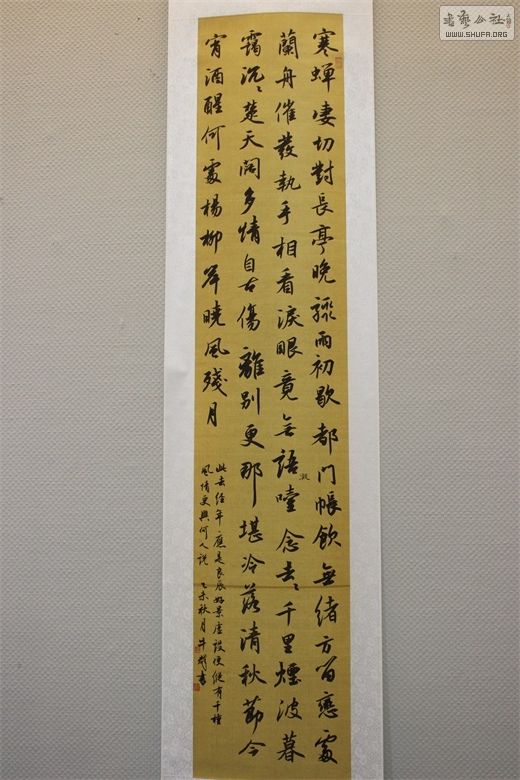 寒蝉凄切對長亭晚驟雨初歇都門帳飲無緒方留戀處
蘭舟催發執手相看淚眼竟無語噎念去々千里煙波暮
凝
靄沉々楚天闊多情自古傷離別更那堪冷落清秋節今
宵酒醒何處楊柳岸曉風殘月
此去經年應是良辰好景虛設便縱有千種
風情更與何人說 乙未秋月牛
書
書藝公社
WWW.SHUFA.ORG